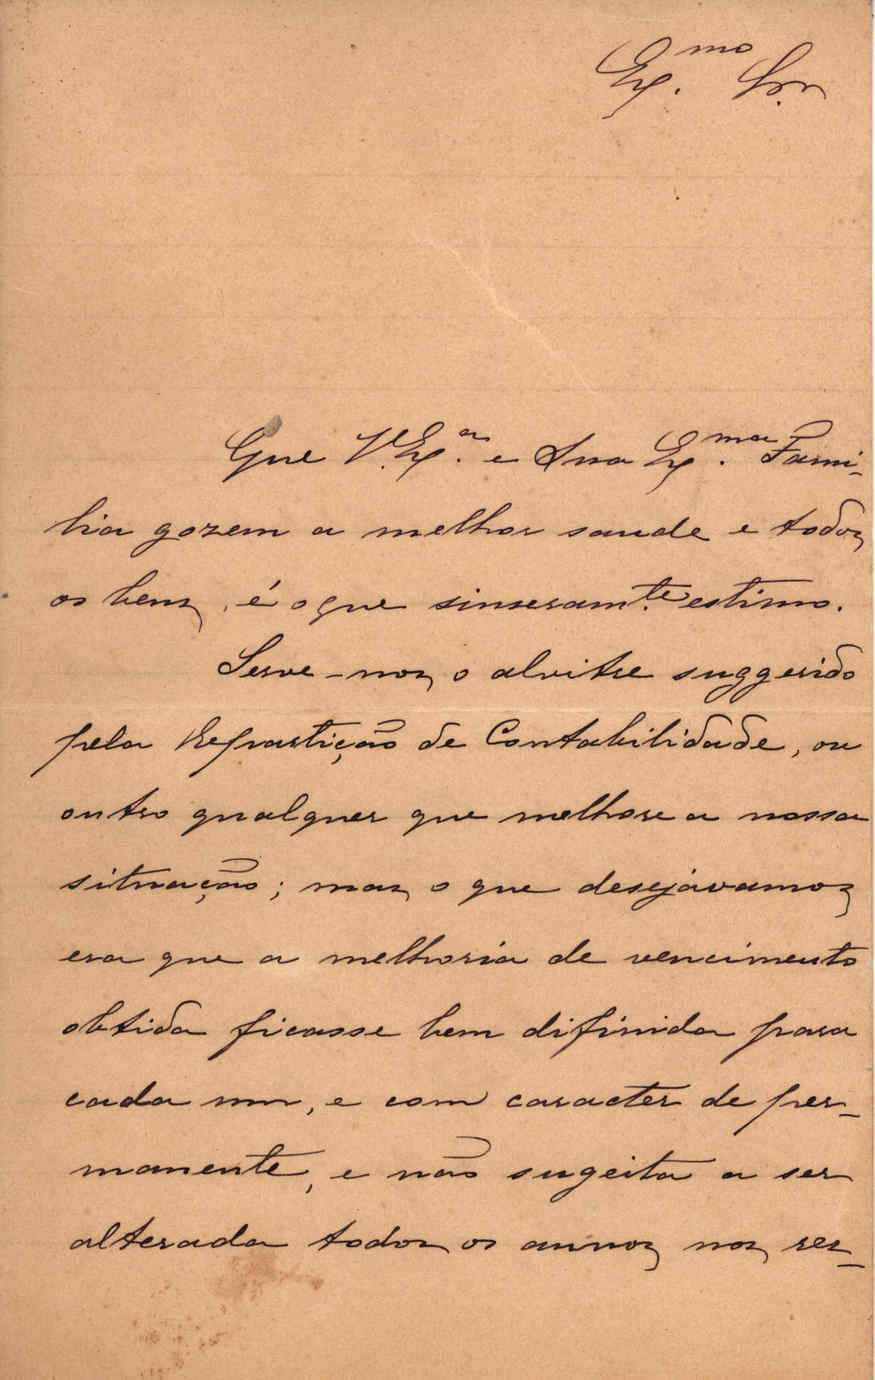 Ex.mo Sr.
Que V. Ex.a e Sua Ex.ma Fami-
lia gozem a melhor saude e todos
os bens, é o que sinseramte. estimo.
Serve-nos o alvitre suggerido
pela Repartição de Contabilidade, ou
outro qualquer que melhore a nossa
situação; mas o que desejávamos
era que a melhoria de vencimento
obtida ficasse bem difinida para
cada um, e com caracter de per-
manente, e não sugeita a ser
alterada todos os annos nos res-